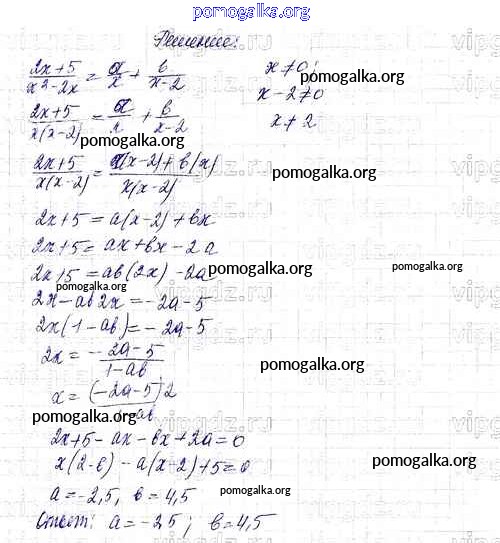 pomogalka.org
Решение:
(2x+5)/(x²-2x) = a/x + в/(x-2)   x≠0;
pomogalka.org
x-2≠0
(2x+5)/(x(x-2)) = a/x + в/(x-2)   x≠2
pomogalka.org
(2x+5)/(x(x-2)) = (a(x-2)+в(x))/(x(x-2))
pomogalka.org
2x+5=a(x-2)+вx
2x+5= ax+вx-2a
2x+5=aв(2x)-2a
pomogalka.org
pomogalka.org
2x-aв2x=-2a-5
2x(1-aв)=-2a-5
2x = (-2a-5)/(1-aв)
pomogalka.org
x = ((-2a-5)2)/(1-aв)
pomogalka.org
2x+5-ax-вx+2a=0
x(2-в)-a(x-2)+5=0
pomogalka.org
a=-2,5, в=4,5
pomogalka.org
Ответ: a=-2,5; в=4,5
vipgdz.ru